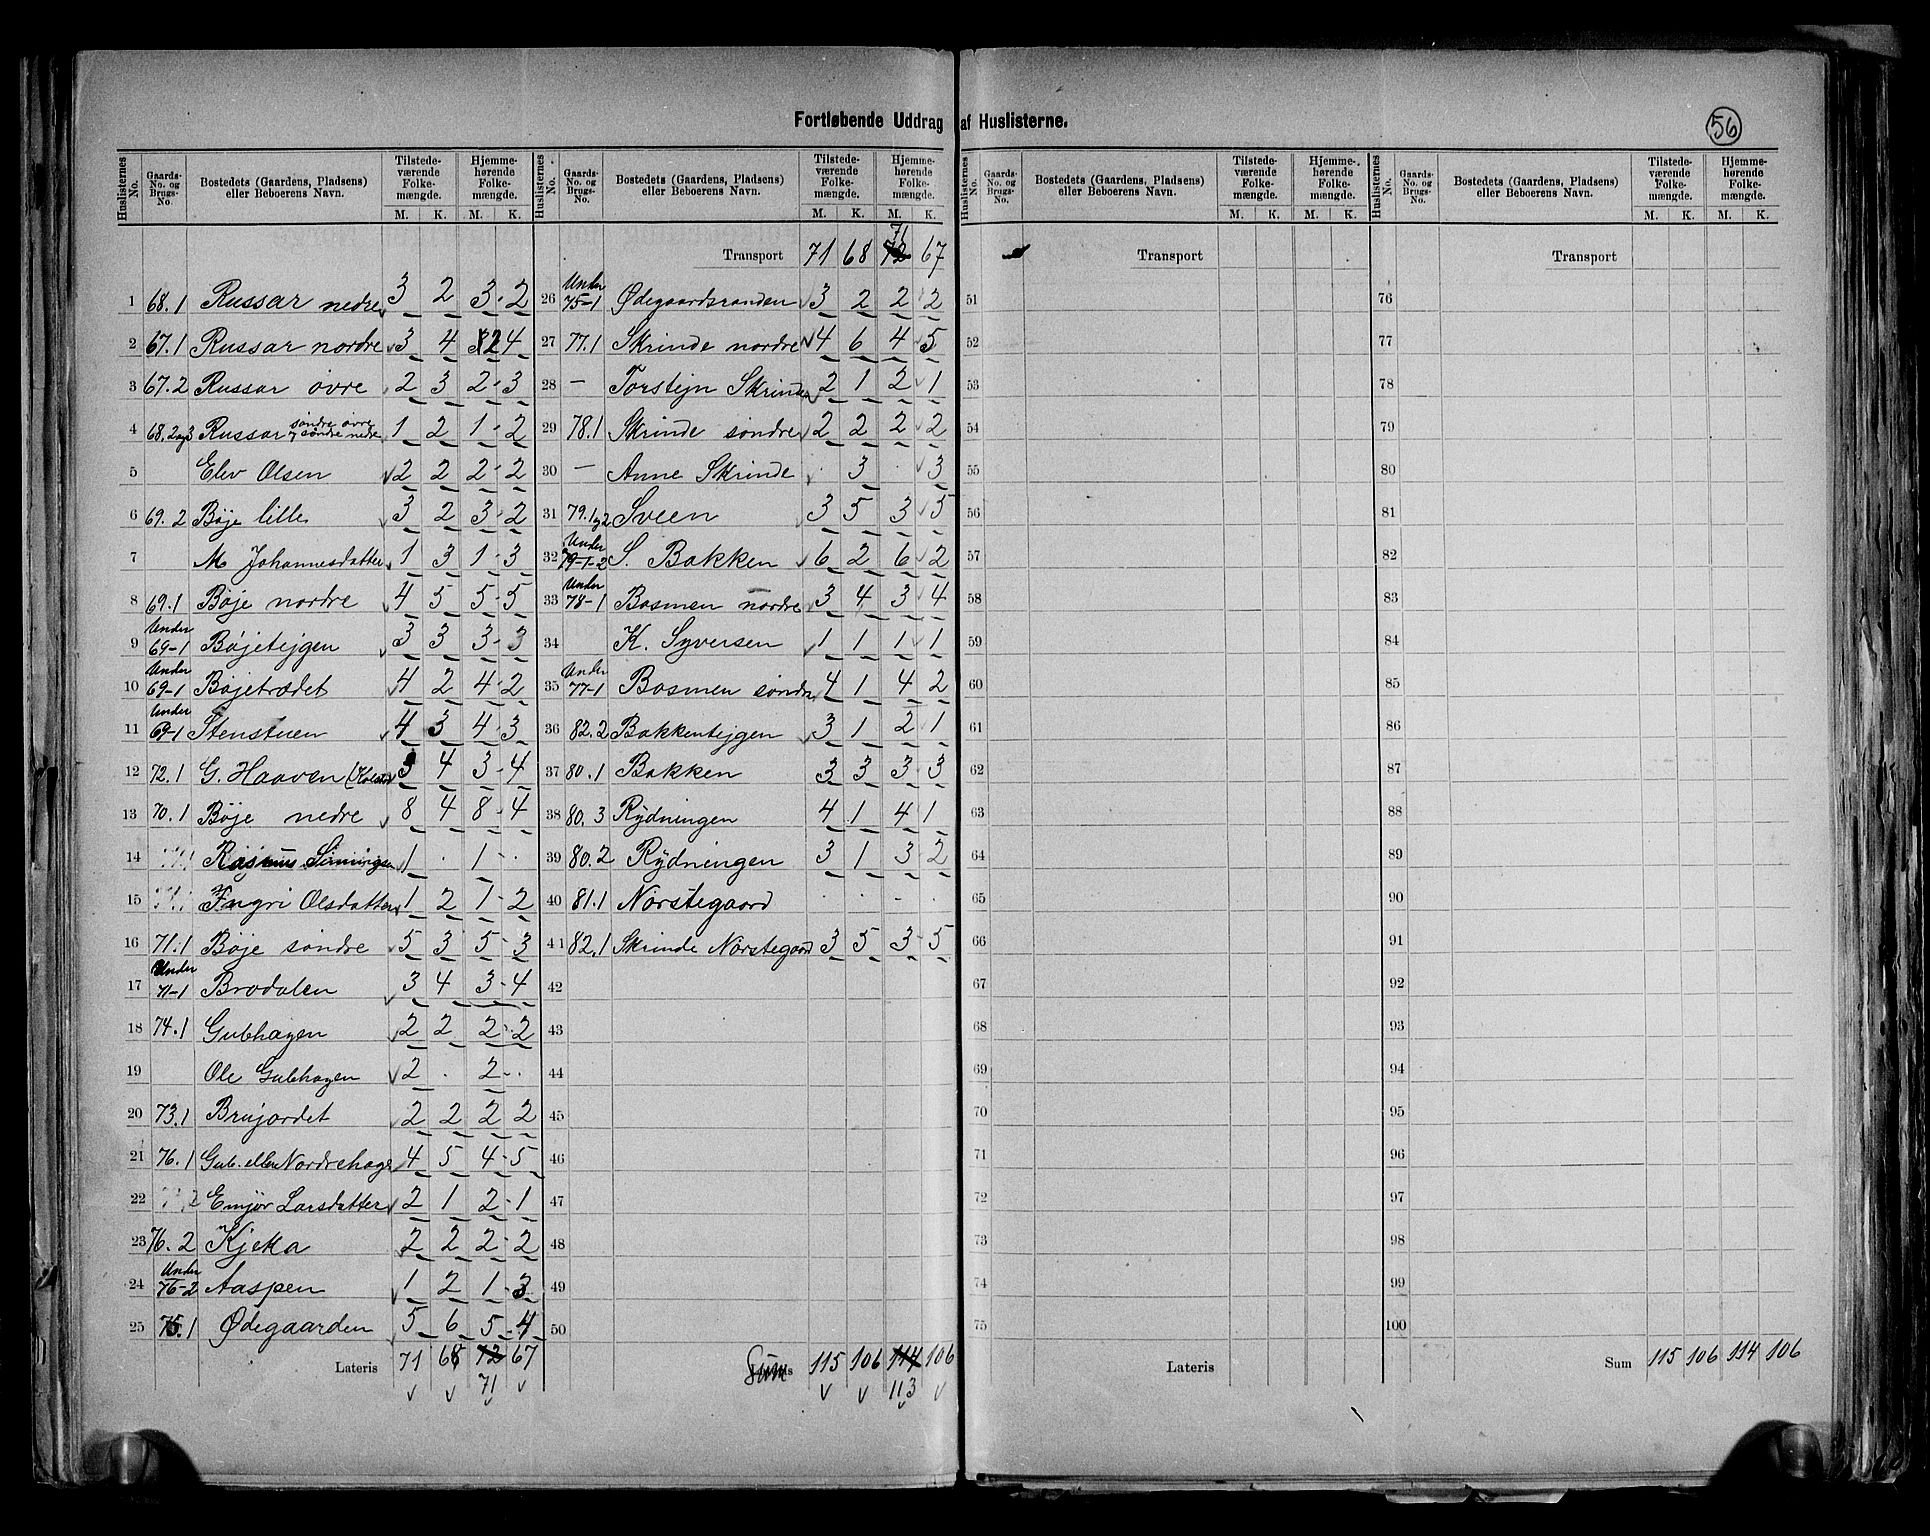 Fortløbende Uddrag af Huslisterne.
56
Huslisternes No. | Gaards-No. og Brugs-No. | Bostedets (Gaardens, Pladsens) eller Beboerens Navn. | Tilstedeværende Folkemængde. M. K. | Hjemmehørende Folkemængde. M. K.
1 68.1 Russar nedre 3 2 3 2
2 67.1 Russar nordre 3 4 2 4
3 67.2 Russar øvre 2 3 2 3
4 68.2og3 Russar søndre øvre og søndre nedre 1 2 1 2
5 Elev Olsen 2 2 2 2
6 69.2 Bøje lille 3 2 3 2
7 M Johannesdatter 1 3 1 3
8 69.1 Bøje nordre 4 5 5 5
9 Under 69-1 Bøjetejgen 3 3 3 3
10 Under 69-1 Bøjetrædet 4 2 4 2
11 Under 69-1 Stenstuen 4 3 4 3
12 72.1 G. Haaven 3 4 3 4
13 70.1 Bøje nedre 8 4 8 4
14 Rasmus 1 . 1 .
15 Ingri Olsdatter 1 2 1 2
16 71.1 Bøje søndre 5 3 5 3
17 Under 71-1 Brodalen 3 4 3 4
18 74.1 Gubhagen 2 2 2 2
19 Ole Gubhagen 2 . 2 .
20 73.1 Brujordet 2 2 2 2
21 76.1 Gub. eller Nordrehagen 4 5 4 5
22 Emjør Larsdatter 2 1 2 1
23 76.2 Kjeka 2 2 2 2
24 Under 76-2 Aaspen 1 2 1 3
25 75.1 Ødegaarden 5 6 5 4
Lateris 71 68 72 67
71
Huslisternes No. | Gaards-No. og Brugs-No. | Bostedets (Gaardens, Pladsens) eller Beboerens Navn. | Tilstedeværende Folkemængde. M. K. | Hjemmehørende Folkemængde. M. K.
71
Transport 71 68 72 67
26 Under 75-1 Ødegaardsranden 3 2 2 2
27 77.1 Skrinde nordre 4 6 4 5
28 — Torstejn Skrinde 2 1 2 1
29 78.1 Skrinde søndre 2 2 2 2
30 — Anne Skrinde . 3 . 3
31 79.1og2 Sveen 3 5 3 5
32 Under 79-1-2 S. Bakken 6 2 6 2
33 Under 78-1 Bosmen nordre 3 4 3 4
34 K. Syversen 1 1 1 1
35 Under 77-1 Bosmen søndre 4 1 4 2
36 82.2 Bakkentejgen 3 1 2 1
37 80.1 Bakken 3 3 3 3
38 80.3 Rydningen 4 1 4 1
39 80.2 Rydningen 3 1 3 2
40 81.1 Norstegaard . . - .
41 82.1 Skrinde Norstegaard 3 5 3 5
42
43
44
45
46
47
48
49
50
Lateris Sum 115 106 114 106
113
Huslisternes No. | Gaards-No. og Brugs-No. | Bostedets (Gaardens, Pladsens) eller Beboerens Navn. | Tilstedeværende Folkemængde. M. K. | Hjemmehørende Folkemængde. M. K.
Transport
51
52
53
54
55
56
57
58
59
60
61
62
63
64
65
66
67
68
69
70
71
72
73
74
75
Lateris
Huslisternes No. | Gaards-No. og Brugs-No. | Bostedets (Gaardens, Pladsens) eller Beboerens Navn. | Tilstedeværende Folkemængde. M. K. | Hjemmehørende Folkemængde. M. K.
Transport
76
77
78
79
80
81
82
83
84
85
86
87
88
89
90
91
92
93
94
95
96
97
98
99
100
Sum 115 106 114 106